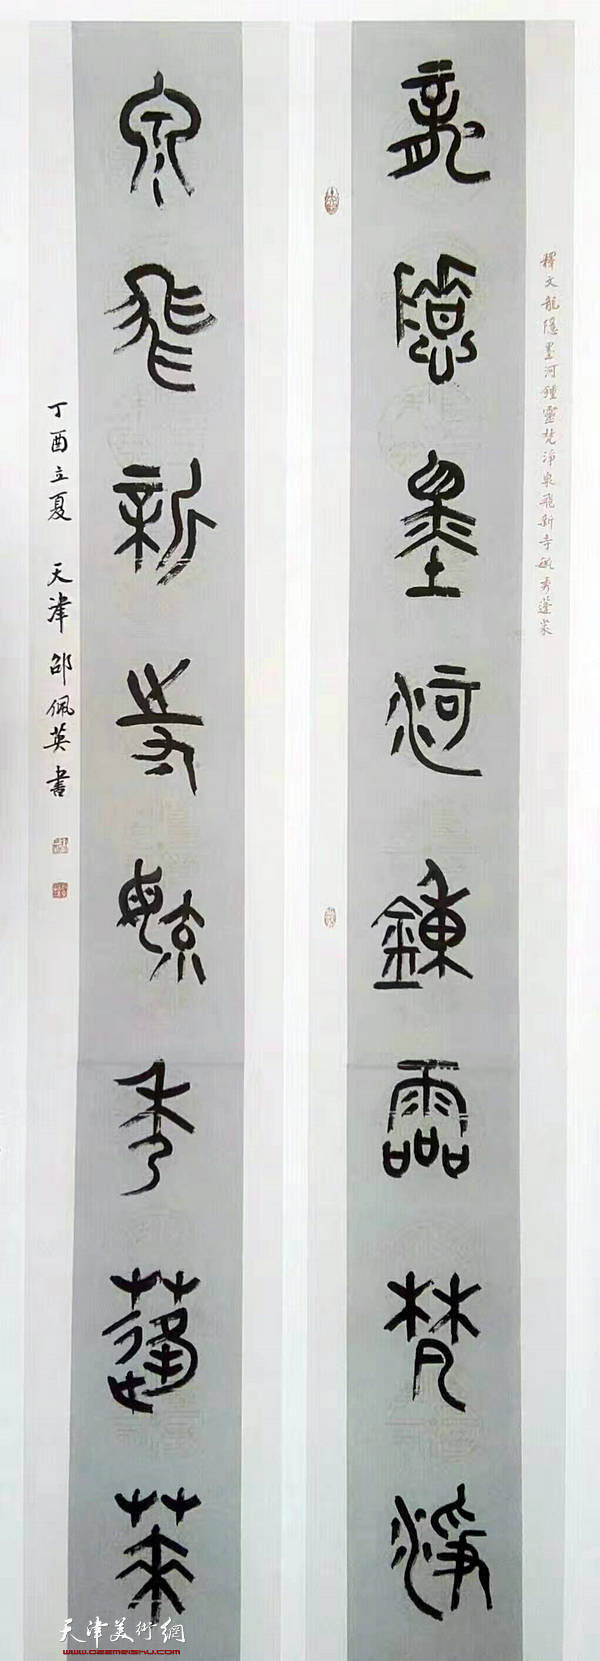 釋文龍隱墨河鍾靈梵淨泉飛新寺毓秀蓬萊
龍隱墨河鍾靈梵淨
泉飛新寺毓秀蓬萊
丁酉立夏 天津邵佩英書
天津美術網
www.022meishu.com